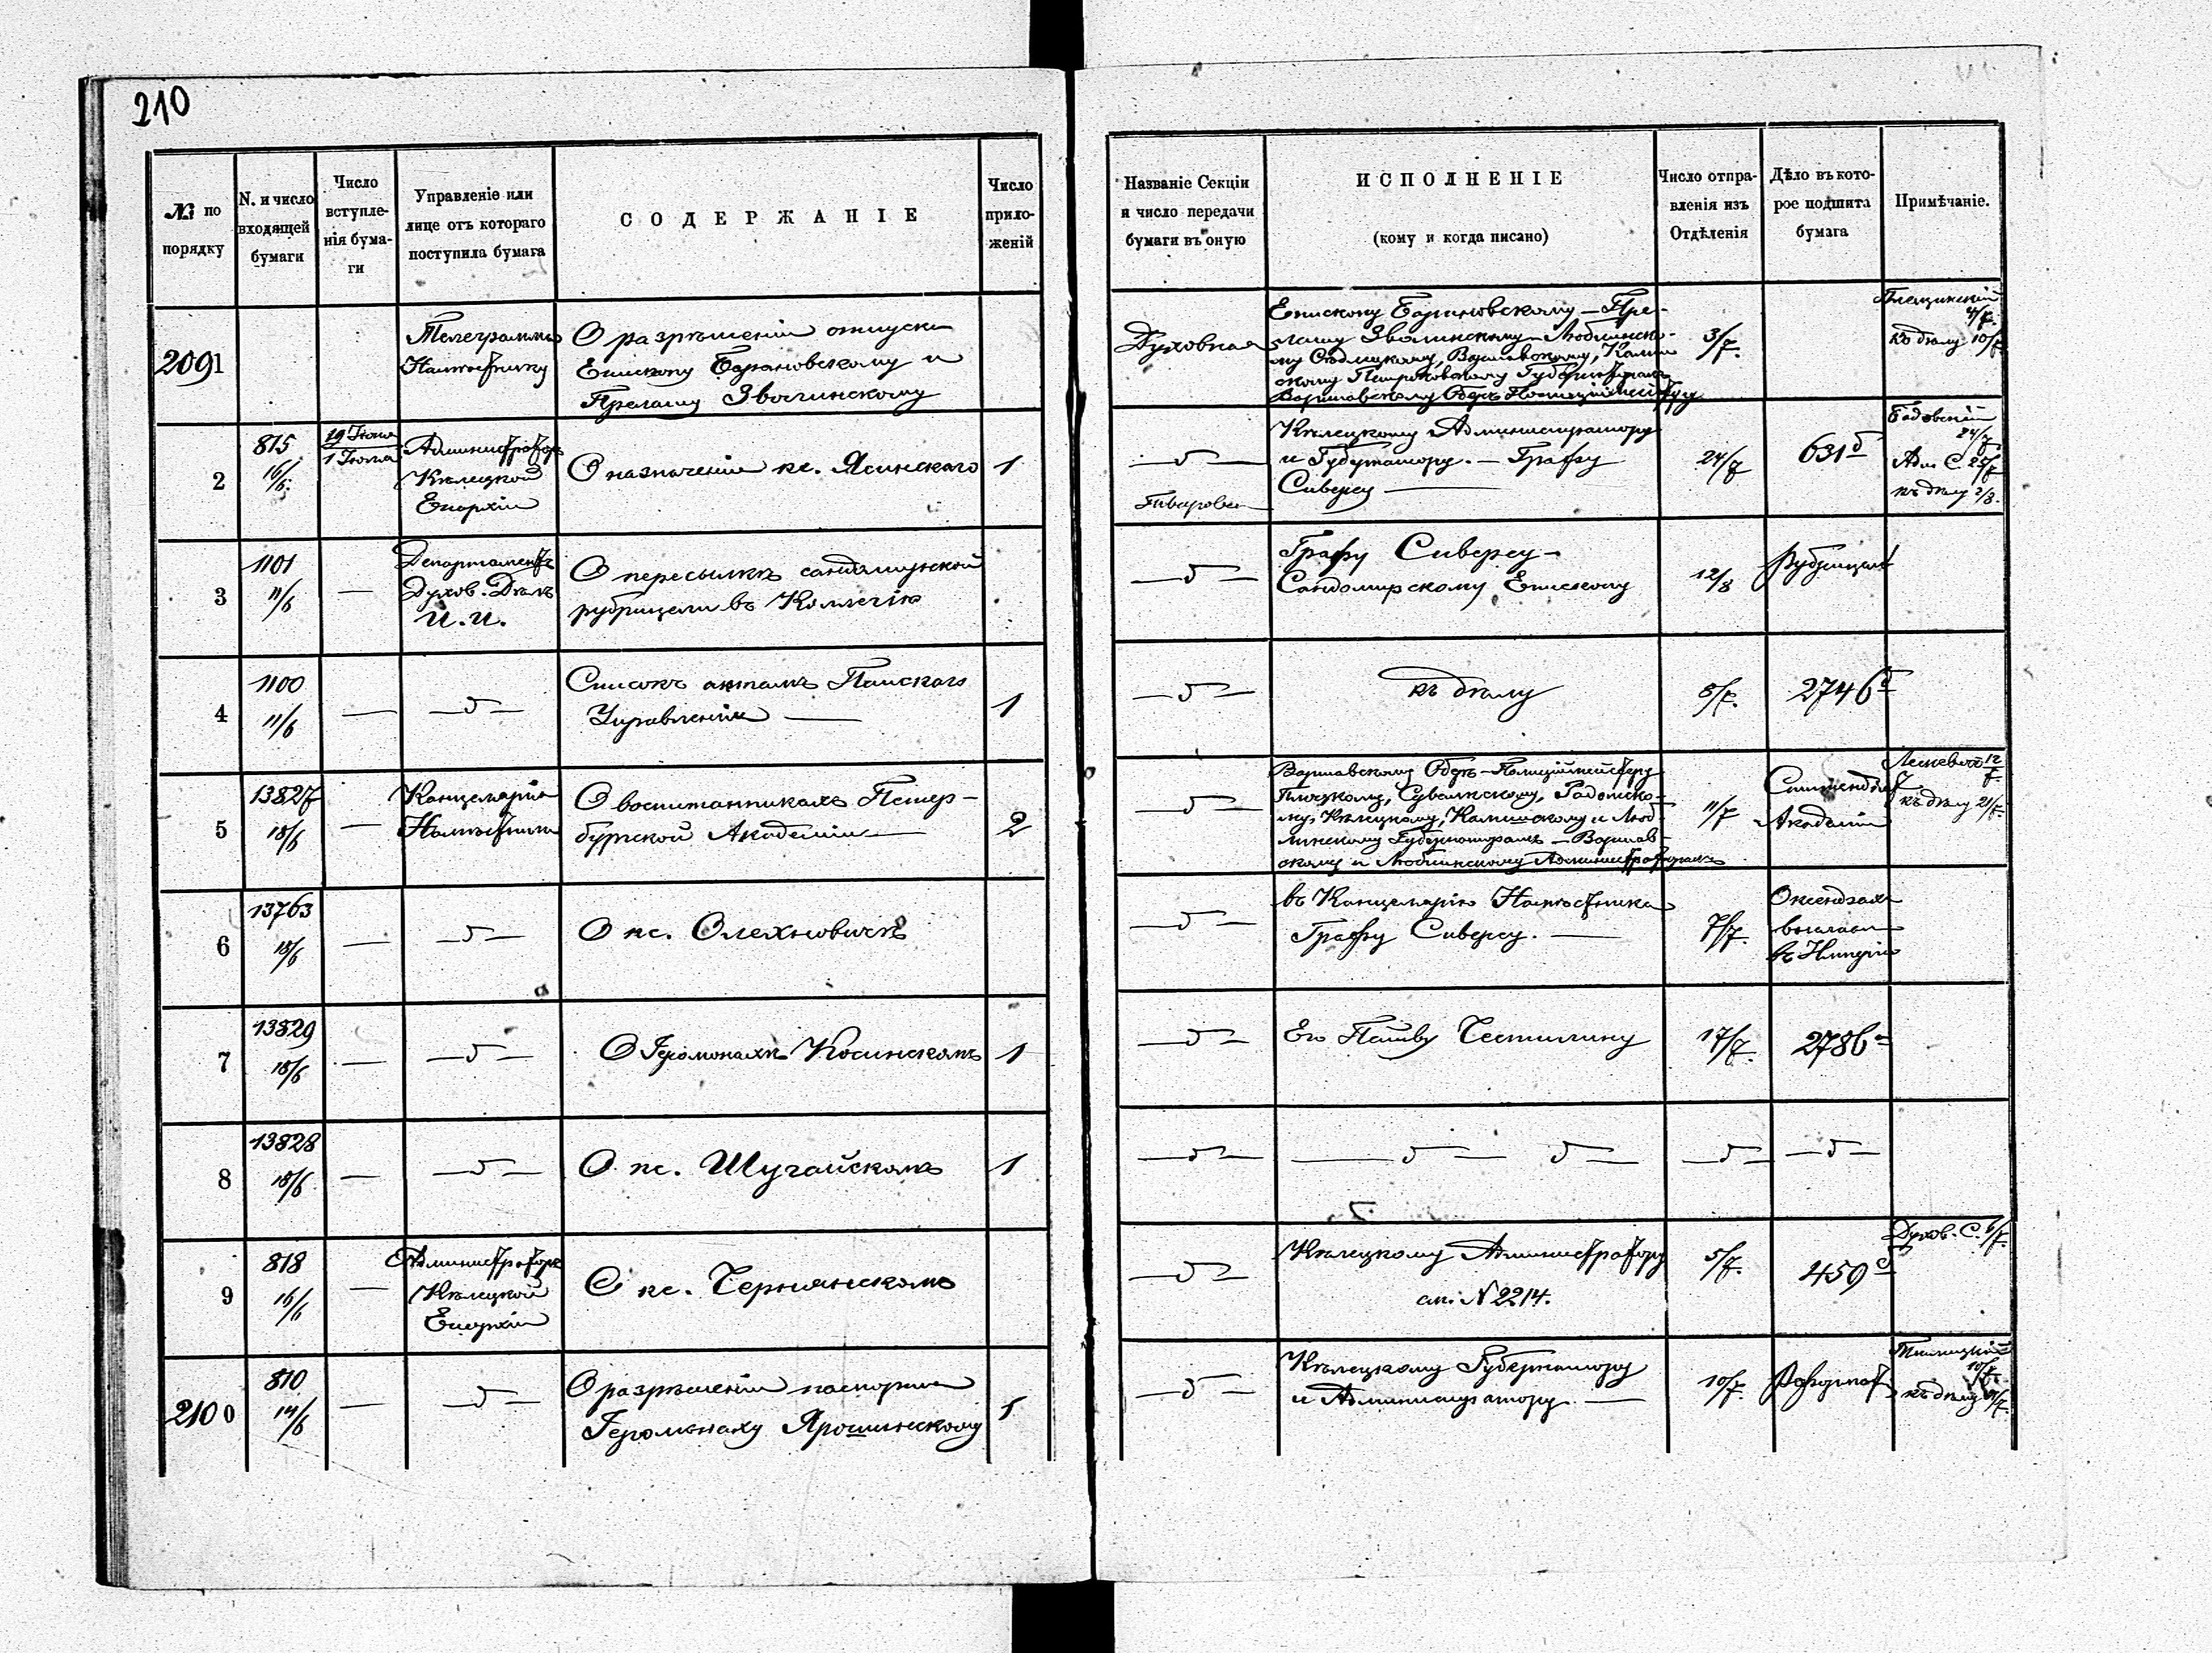 210
№ по порядку
N. и число входящей бумаги
Число вступле-нія бума-ги
Управленіе или лице отъ котораго поступила бумага
СОДЕРЖАНІЕ
Число прило-женій
Названіе Секціи и число передачи бумаги въ оную
ИСПОЛНЕНІЕ
(кому и когда писано)
Число отпра-вленія изъ Отдѣленія
Дѣло въ кото-рое подшита бумага
Примѣчаніе.
2091
Телеграмма
Намѣстнику
О разрѣшеніи отпуска
Епископу Барановскому и
Прелату Зволинскому
Духовная
Епископу Барановскому — Пре-
лату Зволинскому — Люблинско-
му Сѣдлецкому, Варшавскому, Калиш
скому Петроковскому Губернаторамъ
Варшавскому Оберъ Полиціймейстеру
3/7.
4/7.
къ дѣлу 10/7
2
815
16/6.
19 Іюня
1 Іюля
Администраторъ
Кѣлецкой
Епархіи
О назначеніи кс. Ясинскаго
1
Кѣлецкому Администратору
и Губернатору. — Графу
Сиверсу —
24/7
631
24/7
Адм С. 25/7
къ дѣлу 2/8.
3
1101
11/6
—
Департаментъ
Духов. Дѣлъ
И. И.
О пересылкѣ сандомирской
рубрицели въ Коллегію
Графу Сиверсу —
Сандомирскому Епископу
12/8
Рубрицели
4
1100
11/6
—
Списокъ актамъ Папскаго
Управленія —
1
къ дѣлу
5/7.
2746
5
13827
18/6
—
Канцелярія
Намѣстника
О воспитанникахъ Петер-
бургской Академіи —
2
Варшавскому Оберъ-Полиціймейстеру
Плоцкому, Сувалкскому, Радомско-
му, Кѣлецкому, Калишскому и Люб-
линскому Губернаторамъ — Варшав-
скому и Люблинскому Администраторамъ
11/7
Стипендіи
Академіи
12/7
къ дѣлу 21/7.
6
13763
18/6
—
О кс. Олехновичѣ
въ Канцелярію Намѣстника
Графу Сиверсу. —
7/7.
О ксендзахъ
высланн
въ Имперію
7
13829
18/6
—
О Іеромонахѣ Косинскомъ
1
17/7.
2786
8
13828
18/6
—
О кс. Шугайскомъ
1
9
818
16/6
—
Администраторъ
Кѣлецкой
Епархіи
О кс. Чернянскомъ
Кѣлецкому Администратору
см. N 2214.
5/7.
459
Духов. С. 6/7.
2100
810
14/6
—
О разрѣшеніи паспорта
Іеромонаху Ярошинскому
1
Кѣлецкому Губернатору
и Администратору —
10/7.
10/7.
къ дѣлу